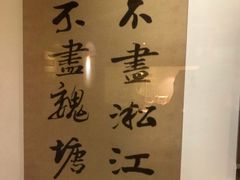 不盡淞江
不盡魏塘